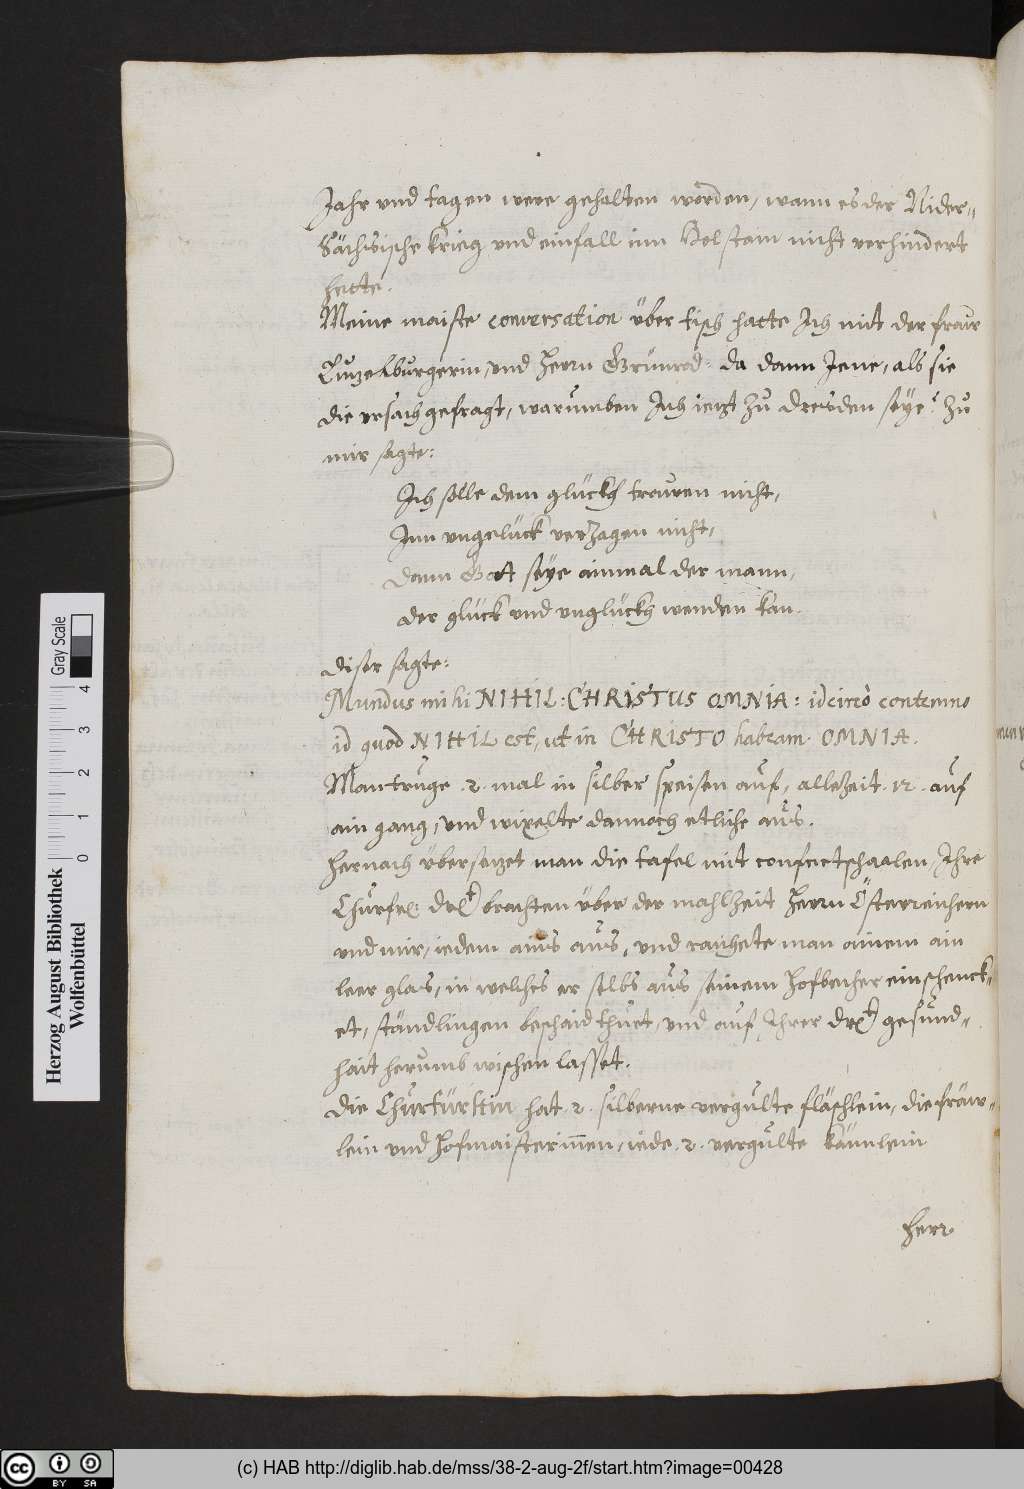 Jahr vnd tagen were gehalten worden, wann es der Nider-
Sächsische krieg vnd einfall inn Holstain nicht verhindert
hette.
Meine maiste conversation über tisch hatte Ich mit der fraw
Lüzelburgerin, vnd Herrn Grünrod: da dann Jene, als sie
die vrsach gefragt, warumben Ich iezt zu Dresden seye? zu
mir sagte:
Ich solle dem glückh trawen nicht,
Inn vngelück verzagen nicht,
Dann Gott seye ainmal der mann,
der glück vnd vnglückh wenden kan.
Diser sagte:
Mundus mihi NIHIL: CHRISTUS OMNIA: idcircò contemno
id quod NIHIL est, ut in CHRISTO habeam OMNIA.
Man truge .2. mal in silber speisen auf, allezeit .12. auf
ain gang, vnd wixelte dannoch etliche aus.
Hernach übersezet man die tafel mit confectschaalen, Ihre
Churfr: Drl. brachten über der mahlzeit Herrn Österreichern
vnd mir, iedem ains aus, vnd raichete man ainem ain
leer glas, in welches er selbs aus seinem hofbecher einschenck-
et, ständlingen beschaid thuet, vnd auf Ihrer Drl. gesund-
hait herumb wischen lasset.
Die Churfürstin hat .2. silberne vergulte fläschlein, die fräw-
lein vnd Hofmaisterinnen, iede .2. vergulte käunlein
Herr
Herzog August Bibliothek
Wolfenbüttel
0 1 2 3 4
Gray Scale
cc BY SA
(c) HAB http://diglib.hab.de/mss/38-2-aug-2f/start.htm?image=00428